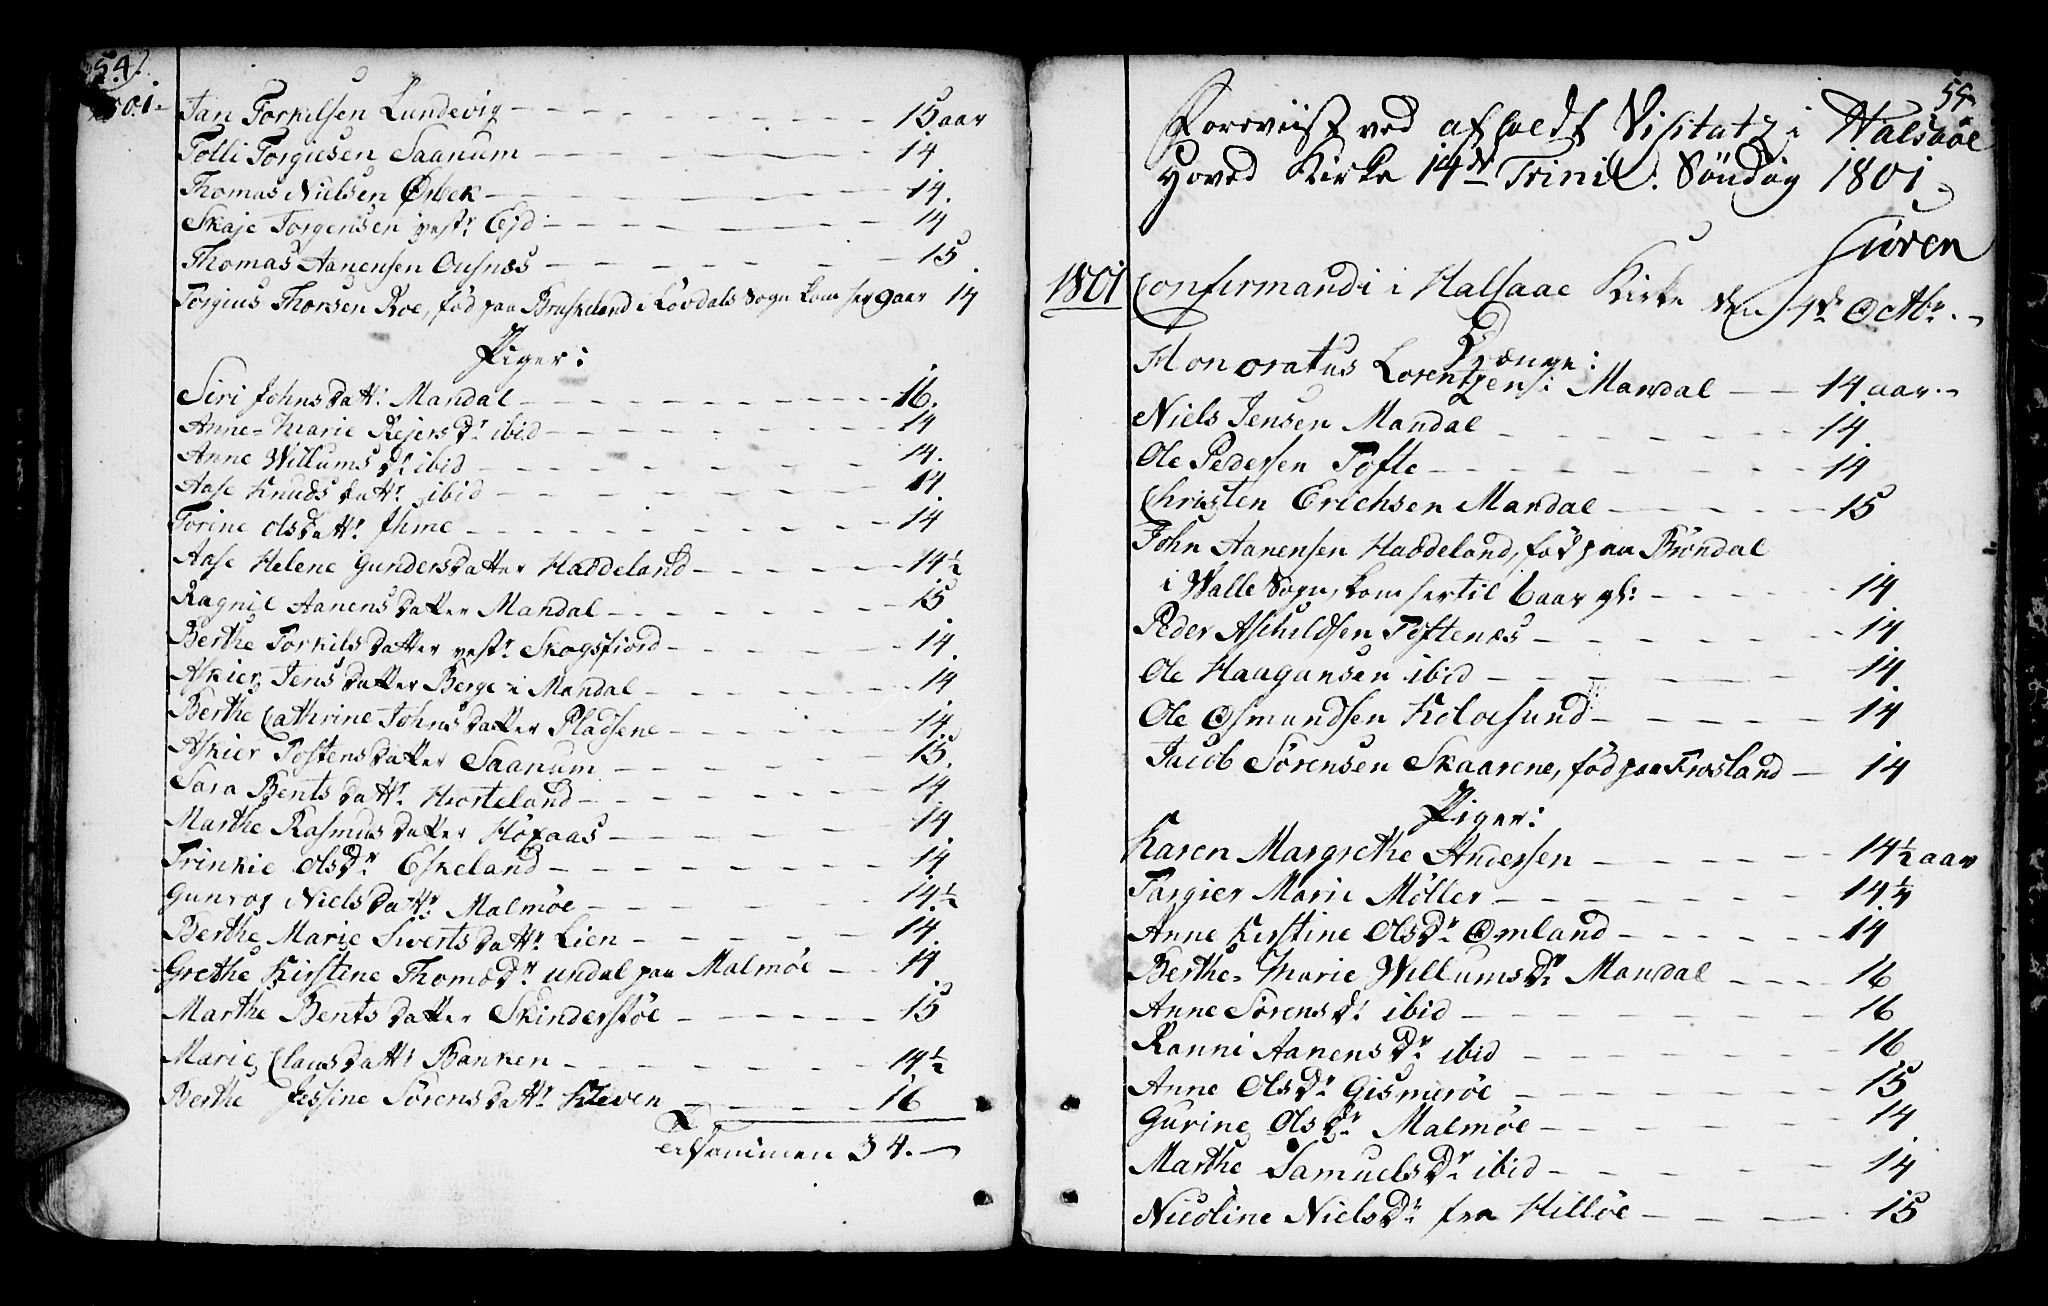 54.
1801.
Jan Torkilsen Lundevig - - - 15 aar
Tolli Torgiesen Saanum - - - 14
Thomas Nielsen Ørbek - - - 14.
Skaje Torgensen vestr Ejd - - - 14
Thomas Aanensen Ousnæs - - - 15
Torgius Thorsen Roe, fød paa Bruskeland i Løvdals Sogn kom her 9 aar 14
Piger:
Siri Johnsdattr Mandal - - - 16.
Anne-Marie Rejersdr ibid - - - 14
Anne Willums dr ibid - - - 14.
Aase Knudsdattr ibid - - - 14
Torine Olsdattr Ihme - - - 14
Aase Helene Gundersdatter Haddeland - - - 14 1/2
Ragnil Aanensdatter Mandal - - - 15
Berthe Torkilsdatter vestr Skogsfiord - - - 14.
Askier Jensdatter Berge i Mandal - - - 14
Berthe Cathrine Johnsdatter Pladsene - - - 14.
Askier Tostensdatter Saanum - - - 15.
Sara Bentsdattr Hiorteland - - - 14
Marthe Rasmusdatter Høxaas - - - 14
Trinkie Olsdr Eskeland - - - 14
Gunvor Nielsdattr Malmøe - - - 14 1/2
Berthe Marie Sivertsdattr Lien - - - 14
Grethe Kirstine Thomædr Undal paa Malmøe - - 14
Marthe Bentsdatter Skinderstøe - - - 15
Marie Clausdattr Banken - - - 14 1/2
Berthe Jessine Sørensdattr Kleven - - - 16
Tilsammen 34.
55.
Foreviist ved afholdt Visitatz i Halsaae
Hoved Kirke 14de Trinit. Søndag 1801.
Juren
1801 Confirmandi i Halsaae Kirke den 4de Octbr.
Drænge:
Honoratus Lorentzen i Mandal - - 14 aar.
Niels Jensen Mandal - - - 14.
Ole Pedersen Tofte - - - 14
Christen Erichsen Mandal - - - 15
John Aanensen Haddeland, fød paa Brøndal
i Walle Sogn, kom hertil 6 aar gl: - - - 14
Peder Aschildsen Toftenæs - - - 14
Ole Haagansen ibid - - - 14
Ole Osmundsen Koloesund - - - 14
Jacob Sørensen Skaarene, fød paa Frosland - 14
Piger:
Karen Margrethe Andersen - - - 14 1/2 aar
Targier Marie Møller - - - 14 1/4
Anne Kirstine Olsdr Omland - - - 14
Berthe-Marie Willumsdr Mandal - - - 16
Anne Sørensdr ibid - - - 16
Ranni Aanensdr ibid - - - 16
Anne Olsdr Gismerøe - - - 15
Gurine Olsdr Malmøe - - - 14
Marthe Samuelsdr ibid - - - 14
Nicoline Nielsdr fra Hilløe - - - 15